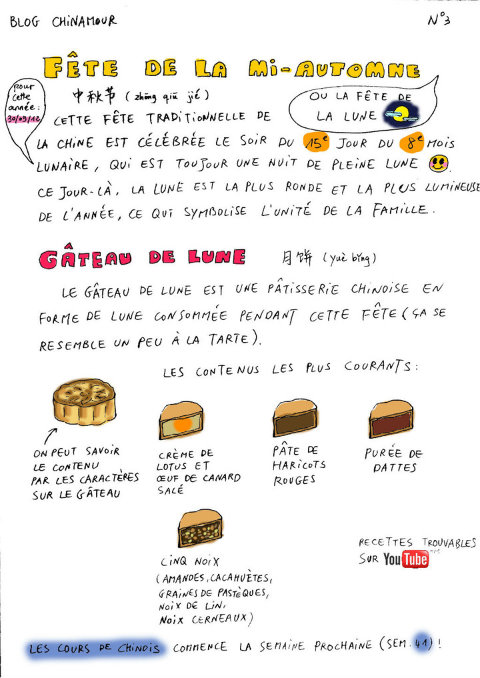 BLOG CHINAMOUR
N°3
FÊTE DE LA MI-AUTOMNE
POUR
cette
année:
30/09/12
中秋节 (zhōng qiū jié)
OU LA FÊTE DE
LA LUNE
CETTE FÊTE TRADITIONNELLE DE
LA CHINE EST CÉLÉBRÉE LE SOIR DU 15e JOUR DU 8e MOIS
LUNAIRE, QUI EST TOUJOUR UNE NUIT DE PLEINE LUNE
CE JOUR-LÀ, LA LUNE EST LA PLUS RONDE ET LA PLUS LUMINEUSE
DE L'ANNÉE, CE QUI SYMBOLISE L'UNITÉ DE LA FAMILLE.
GÂTEAU DE LUNE
月饼 (yuè bǐng)
LE GÂTEAU DE LUNE EST UNE PÂTISSERIE CHINOISE EN
FORME DE LUNE CONSOMMÉE PENDANT CETTE FÊTE (ÇA SE
RESEMBLE UN PEU À LA TARTE).
LES CONTENUS LES PLUS COURANTS:
ON PEUT SAVOIR
LE CONTENU
PAR LES CARACTÈRES
SUR LE GÂTEAU
CRÈME DE
LOTUS ET
ŒUF DE CANARD
SALÉ
PÂTE DE
HARICOTS
ROUGES
PURÉE DE
DATTES
CINQ NOIX
(AMANDES, CACAHUÈTES,
GRAINES DE PASTÈQUES,
NOIX DE LIN,
NOIX CERNEAUX)
RECETTES TROUVABLES
SUR YouTube
LES COURS DE CHINOIS COMMENCE LA SEMAINE PROCHAINE (SEM. 41)!